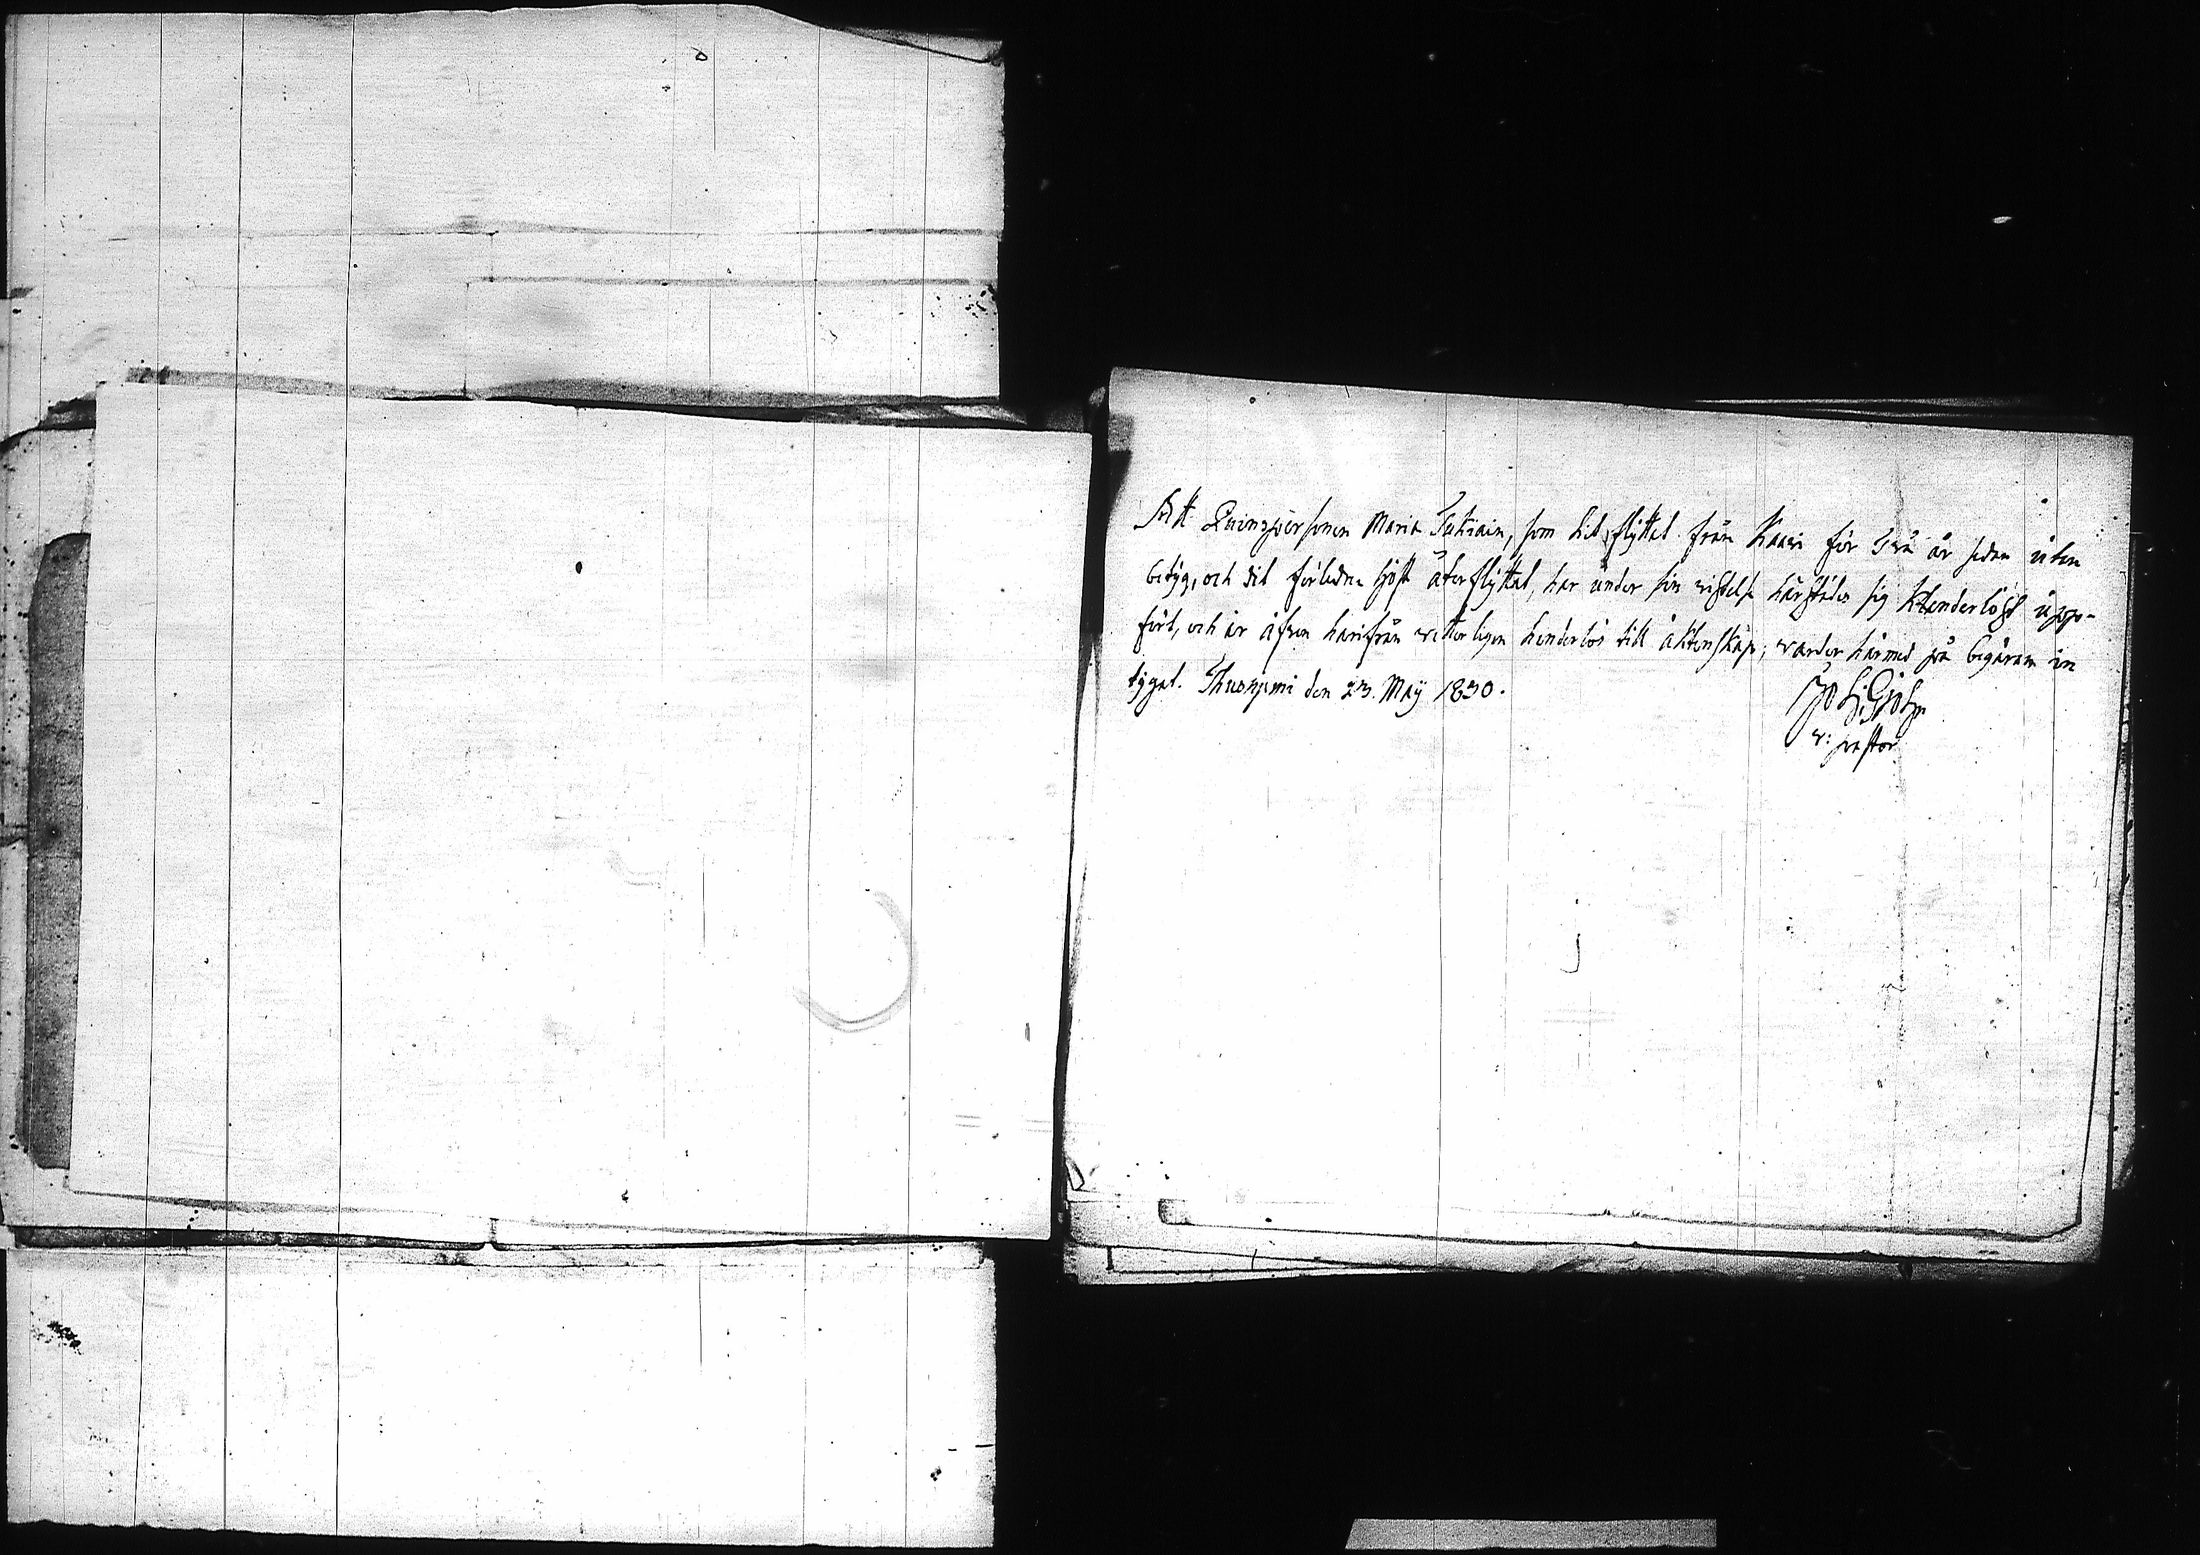 Att Quinspersonen Maria Tukiain, som hit flyttat från Kaavi för två år sedan utan
betyg, och dit förledne höst återflyttat, har under sin vistelse härstädes sig klanderlöst upp-
fört, och är äfven härifrån vetterligen hinderlös till äktenskap; varder härmed på begäran in
tygat. Thusniemi den 23. Maij 1830.
v: pastor.